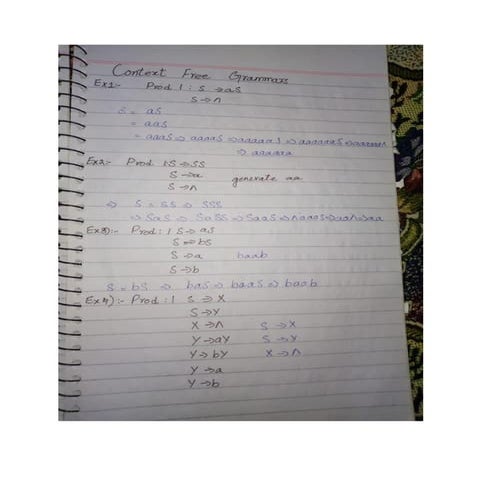 Context Free Grammars
Ex1:- Prod 1 : S → aS
S → Λ
S = aS
= aaS
= aaaS ⇒ aaaaS ⇒ aaaaaS ⇒ aaaaaaS ⇒ aaaaaaΛ
⇒ aaaaaa
Ex2:- Prod 1: S → SS
S → a generate aa
S → Λ
⇒ S = SS ⇒ SSS
⇒ SaS ⇒ SaSS ⇒ SaaS ⇒ ⇒ aa
Ex3):- Prod : 1 S → aS
S → bS
S → a baab
S → b
S = bS ⇒ baS ⇒ baaS ⇒ baab
Ex4) :- Prod : 1 S → X
S → Y
X → Λ S → X
Y → aY S → Y
Y → bY X → Λ
Y → a
Y → b